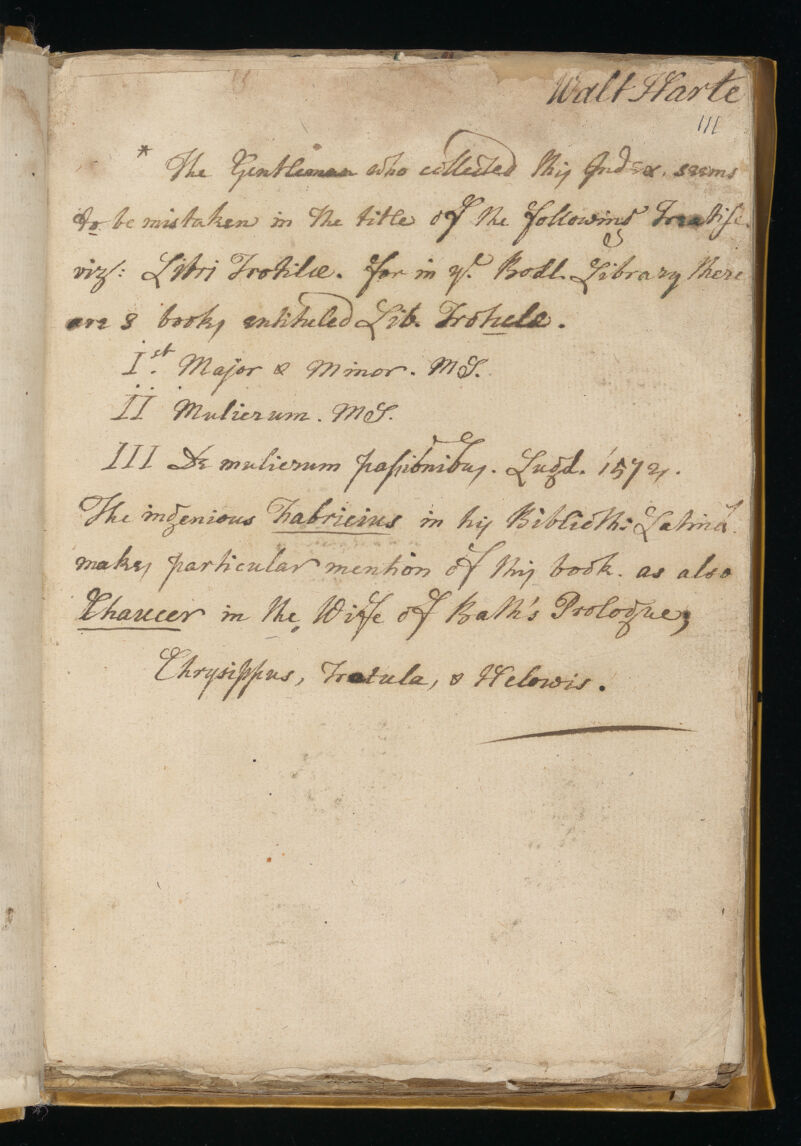 Walt Harte
III
* The Gentleman who collected this Index. seems
to be mistaken in the title of the following Treatise.
viz: Libri Trotilæ. for in yͤ. Bodl. Library there
are 3 books entituled Lib. Trotula.
Iˢᵗ. Major & Minor. MS.
II Mulierum. MS.
III De mulierum passionibus. Lugd. 1572.
The ingenious Fabricius in his Biblioth: Latinâ.
makes particular mention of this book. as also
Chaucer in the Wife of Bath's Prologue;
Chrysippus, Trotula, & Helowis.